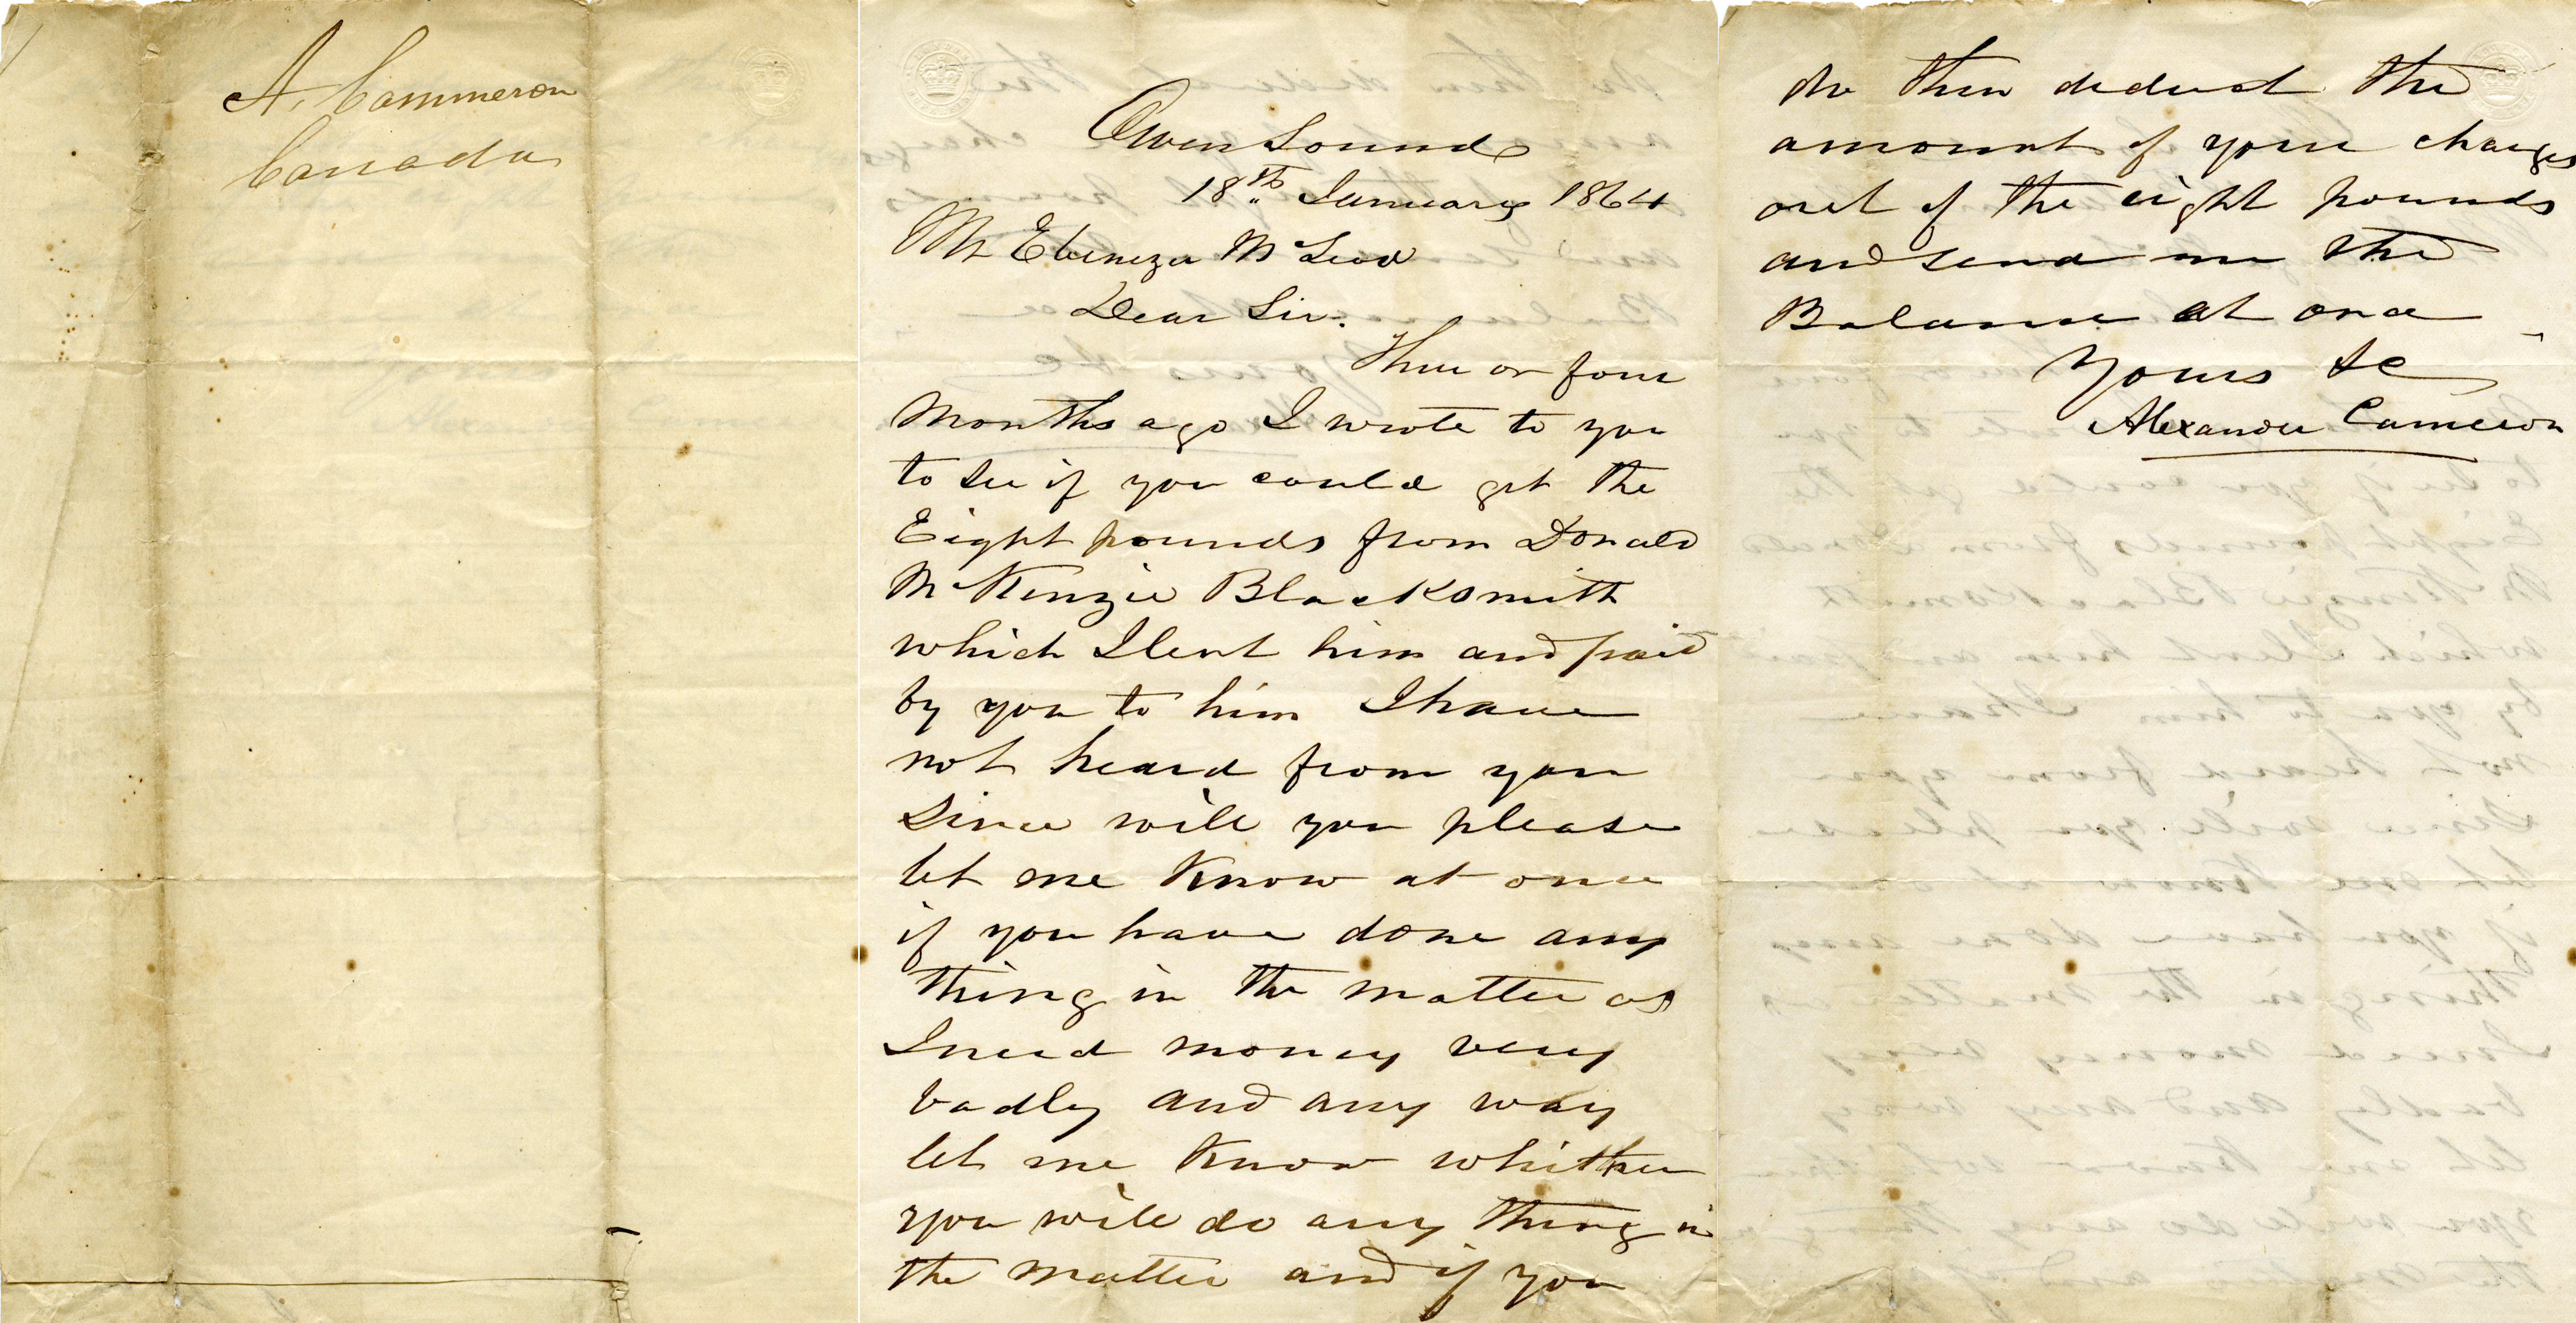 A. Cammeron
Canada
Owen Sound
18th January 1864
Mr Ebenezer McLeod
Dear Sir.
Three or four
Months ago I wrote to you
to see if you could get the
Eight pounds from Donald
McKenzie Blacksmith
which I lent him and paid
by you to him I have
not heard from you
Since will you please
let me know at once
if you have done any
thing in the matter as
I need money very
badly and any way
let me know whither
you will do any thing in
the matter and if you
do then deduct the
amount of your charges
out of the eight pounds
and send me the
Balance at once
Yours &c
Alexander Cameron